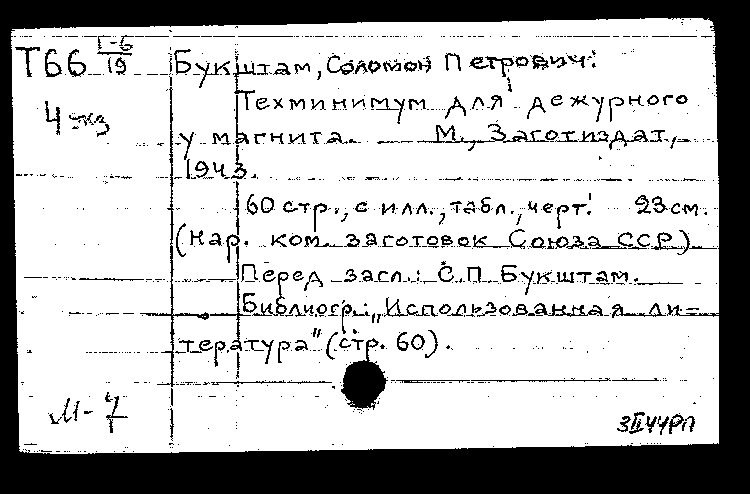 Т66 Г-6/19 Букштам, Соломон Петрович.
4 экз
Техминимум для дежурного
у магнита. М., Заготиздат,
1943.
60 стр., с илл., табл., черт. 23 см.
(Нар. ком. заготовок Союза ССР)
Перед загл.: С.П. Букштам.
Библиогр.: „Использованная ли-
тература" (стр. 60).
М-7
3II44РП